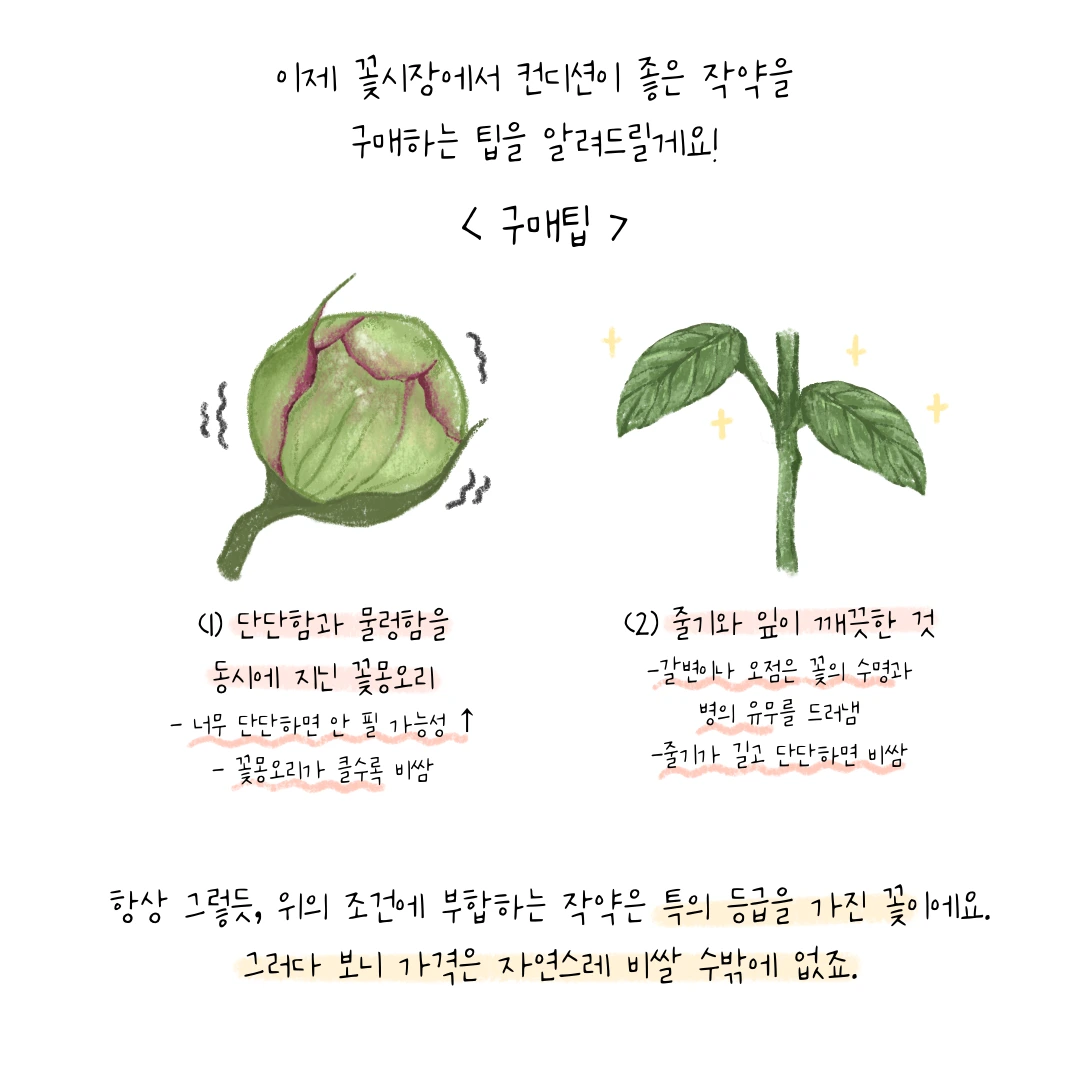 이제 꽃시장에서 컨디션이 좋은 작약을
구매하는 팁을 알려드릴게요!
< 구매팁 >
(1) 단단함과 물렁함을
동시에 지닌 꽃몽오리
- 너무 단단하면 안 필 가능성 ↑
- 꽃몽오리가 클수록 비쌈
(2) 줄기와 잎이 깨끗한 것
-갈변이나 오점은 꽃의 수명과
병의 유무를 드러냄
-줄기가 길고 단단하면 비쌈
항상 그렇듯, 위의 조건에 부합하는 작약은 특의 등급을 가진 꽃이에요.
그러다 보니 가격은 자연스레 비쌀 수밖에 없죠.